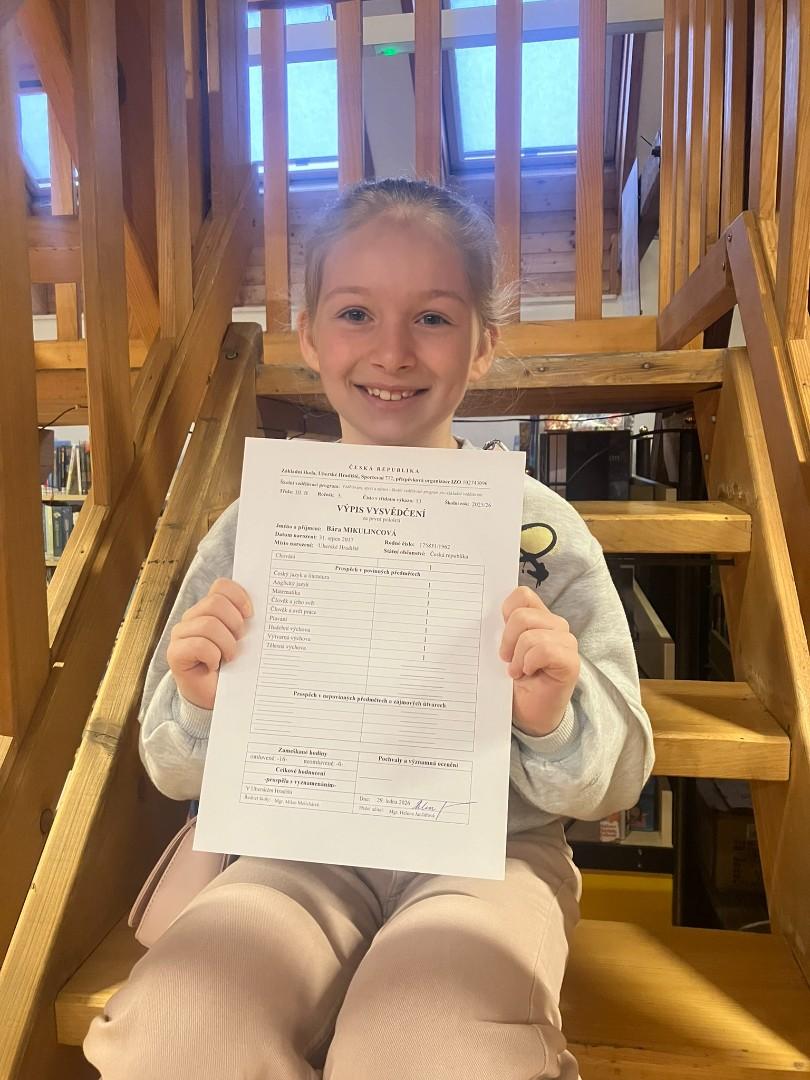 ČESKÁ REPUBLIKA
Základní škola, Uherské Hradiště, Sportovní 777, příspěvková organizace IZO 102743096
Školní vzdělávací program:
Třída: III. B Ročník: 3. Číslo v třídním výkazu: 13 Školní rok: 2025/26
VÝPIS VYSVĚDČENÍ
za první pololetí
Jméno a příjmení: Bára MIKULINCOVÁ
Datum narození: 31. srpen 2017 Rodné číslo: 175831/1962
Místo narození: Uherské Hradiště Státní občanství: Česká republika
Chování 1
Prospěch v povinných předmětech
Český jazyk a literatura 1
Anglický jazyk 1
Matematika 1
Člověk a jeho svět 1
Člověk a svět práce 1
Plavání 1
Hudební výchova 1
Výtvarná výchova 1
Tělesná výchova 1
Prospěch v nepovinných předmětech a zájmových útvarech
Zameškané hodiny Pochvaly a významná ocenění
omluvené: -16- neomluvené: -0-
Celkové hodnocení
-prospěla s vyznamenáním-
V Uherském Hradišti Dne: 29. ledna 2026
Ředitel školy: Mgr. Milan Třídní učitel: Mgr. Helena